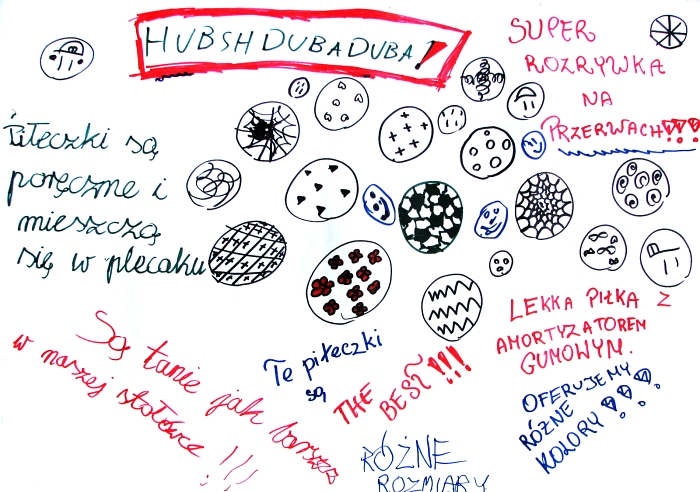 HUBSH DUBA DUBA!
SUPER
ROZRYWKA
NA
PRZERWACH!!!
Piłeczki są
poręczne i
mieszczą
się w plecaku
LEKKA PIŁKA Z
AMORTYZATOREM
GUMOWYM.
Są tanie jak barszcz
w naszej stołówce !!!
Te piłeczki
są
THE
BEST!!!
OFERUJEMY
RÓŻNE
KOLORY!!!
RÓŻNE
ROZMIARY